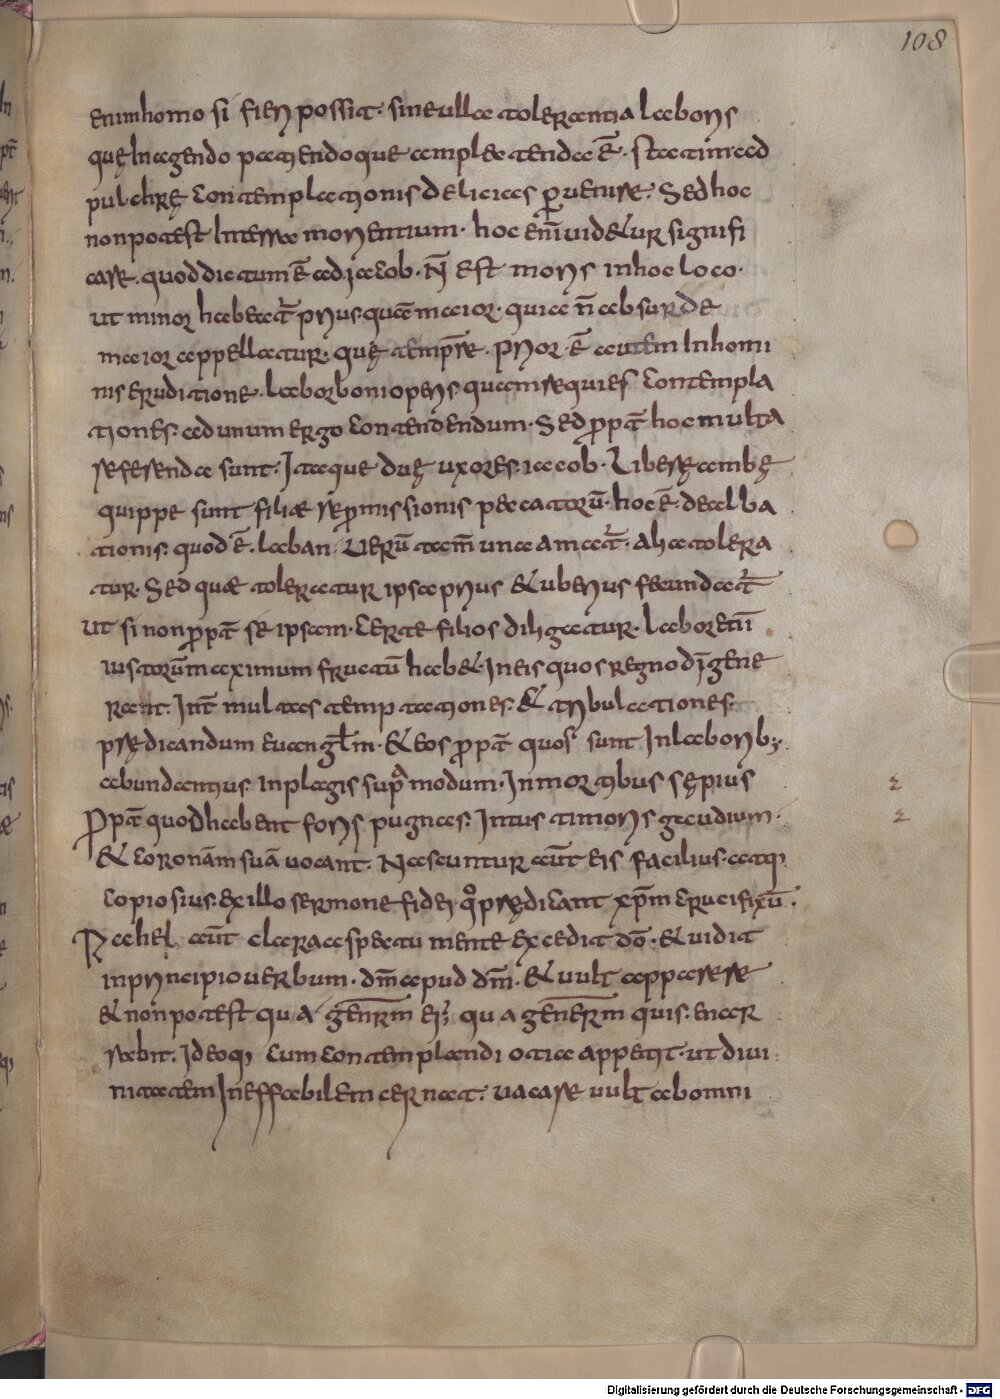 108
enim homo si fieri possit· sine ulla tolerantia laboris
quę In agendo patiendoque amplectenda ē· statim ad
pulchrę contemplationis delicias ꝑuenire· Sed hoc
non potest In terra morientium· hoc eni uidetur signifi
care· quod dictum ē ad iacob· N̄ est moris in hoc loco·
ut minor habeat̄ prius quā maior· quia n̄ absurde
maior appellatur· quę temp̄re· prior· ē autem In homi
nis eruditione· labor boni operis· quam requies contempla
tiones· ad unum ergo contendendum· Sed propt̄ hoc multa
referenda sunt· Itaque duę uxores· iacob· Liberę ambę
quippe sunt filiæ remissionis peccatorū· hoc ē· dealba
tionis· quod ē· laban· Uerū tam̄ una amat̄· alia tolera
tur· Sed quæ toleratur ipsa prius & uberius fecundat̄
ut si non propt̄ se ipsam· Certe filios diligatur· Labor eni
iustorū maximum fructū hab&· In eis quos regno dī gene
rant· Int̄ multas temptationes· & tribulationes·
prędicandum euanglm· & eos propt̄ quos sunt In laborib;·
abundantius· in plagis supra modum· In mortibus sępius
Propt̄ quod habent foris pugnas· Intus timoris gaudium·
& coronam suā uocant· Nascuntur aut̄ eis facilius· atq;
copiosius· ex illo sermone fidei quo prędicant xp̄m crucifixū·
Rachel aut̄ clara aspectu mente excedit dō· & uidit
in principio uerbum· dm̄ apud dm̄· & uult apparere
& non potest qu a genr̄m ei; qu a genērm quis· enar
rabit· Ideoq; cum contemplandi otia appetit· ut diui
nitatem Ineffabilem cernat· uacare uult ab omni
Digitalisierung gefördert durch die Deutsche Forschungsgemeinschaft - DFG